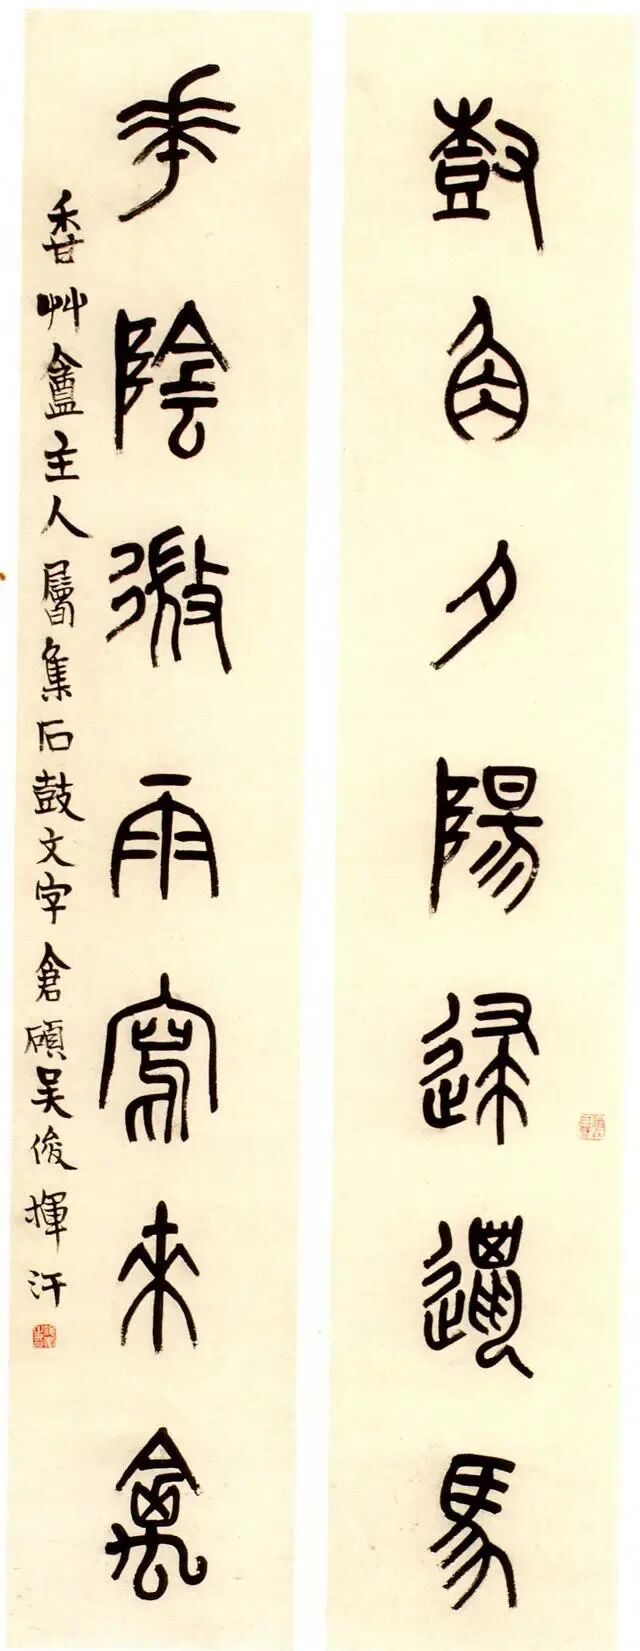 鼓角夕陽歸邍馬
華陰微雨寫來禽
香艸盦主人屬集石鼓文字倉碩吳俊揮汗